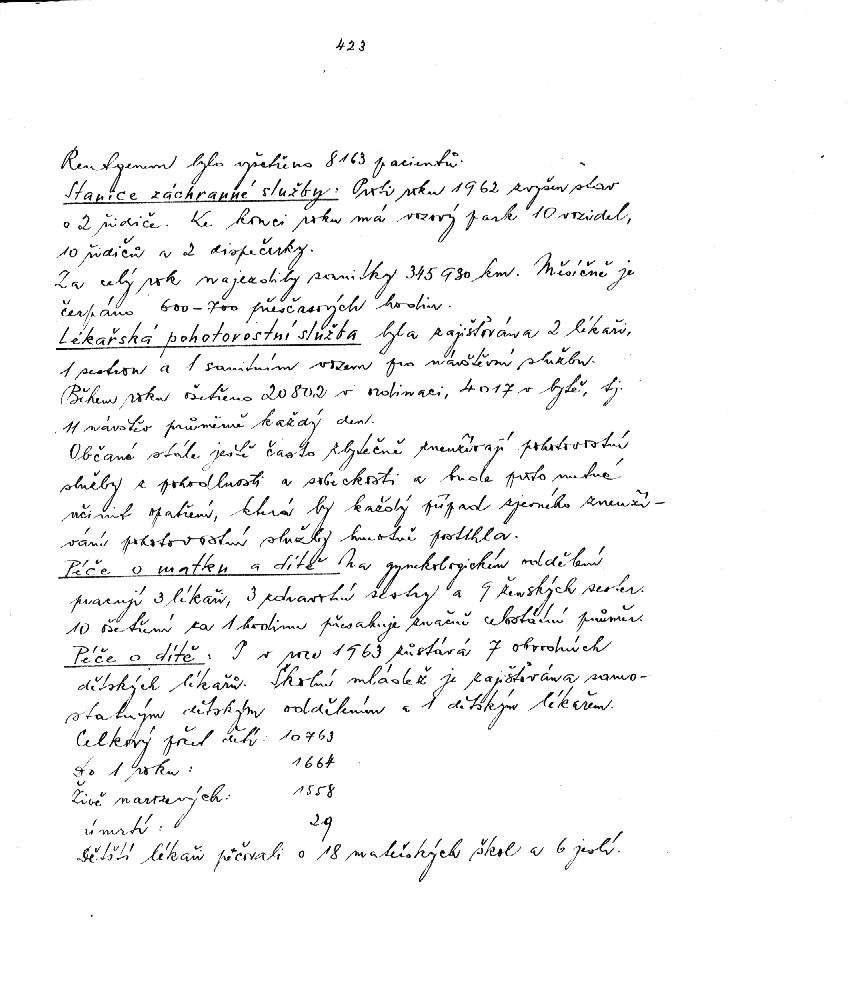 423
Rentgenem bylo vyšetřeno 8163 pacientů.
Stanice záchranné služby: Proti roku 1962 zvýšen stav
o 2 řidiče. Ke konci roku má vozový park 10 vozidel,
10 řidičů a 2 dispečerky.
Za celý rok najezdily sanitky 345 930 km. Měsíčně je
čerpáno 600-700 přesčasových hodin.
Lékařská pohotovostní služba byla zajišťována 2 lékaři,
1 sestrou a 1 sanitním vozem pro návštěvní službu.
Během roku ošetřeno 20802 v ordinaci, 4017 v bytě, tj.
11 návštěv průměrně každý den.
Občané stále ještě často zbytečně zneužívají pohotovostní
služby z pohodlnosti a sobeckosti a bude proto nutné
učinit opatření, která by každý případ zjevného zneuží-
vání pohotovostní služby hmotně postihla.
Péče o matku a dítě Na gynekologickém oddělení
pracují 3 lékaři, 3 zdravotní sestry a 9 ženských sester.
10 ošetření za 1 hodinu přesahuje značně celostátní průměr.
Péče o dítě: I v roce 1963 zůstává 7 obvodních
dětských lékařů. Školní mládež je zajišťována samo-
statným dětským oddělením a 1 dětským lékařem.
Celkový počet dětí: 10763
do 1 roku: 1664
Živě narozených: 1558
úmrtí: 29
Dětští lékaři pečovali o 18 mateřských škol a 6 jeslí.